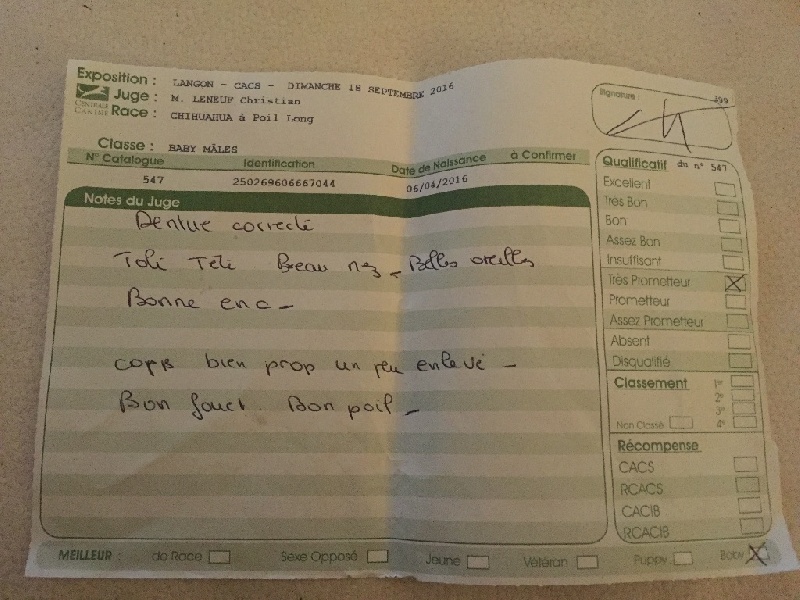 Exposition : LANGON - CACS - DIMANCHE 18 SEPTEMBRE 2016
Juge : M. LENEUF Christian
CENTRALE CANINE
Race : CHIHUAHUA à Poil Long
Signature :
Classe : BABY MÂLES
N° Catalogue Identification Date de Naissance à Confirmer
547 250269606667044 06/04/2016
Notes du Juge
Dentue correcte
Tête Beau nez - Belles oreilles
Bonne enc -
corps bien prop un peu enlevé -
Bon fouet. Bon poil -
Qualificatif du n° 547
Excellent
Très Bon
Bon
Assez Bon
Insuffisant
Très Prometteur X
Prometteur
Assez Prometteur
Absent
Disqualifié
Classement 1er
2e
3e
Non Classé 4e
Récompense
CACS
RCACS
CACIB
RCACIB
MEILLEUR : de Race Sexe Opposé Jeune Vétéran Puppy Baby X